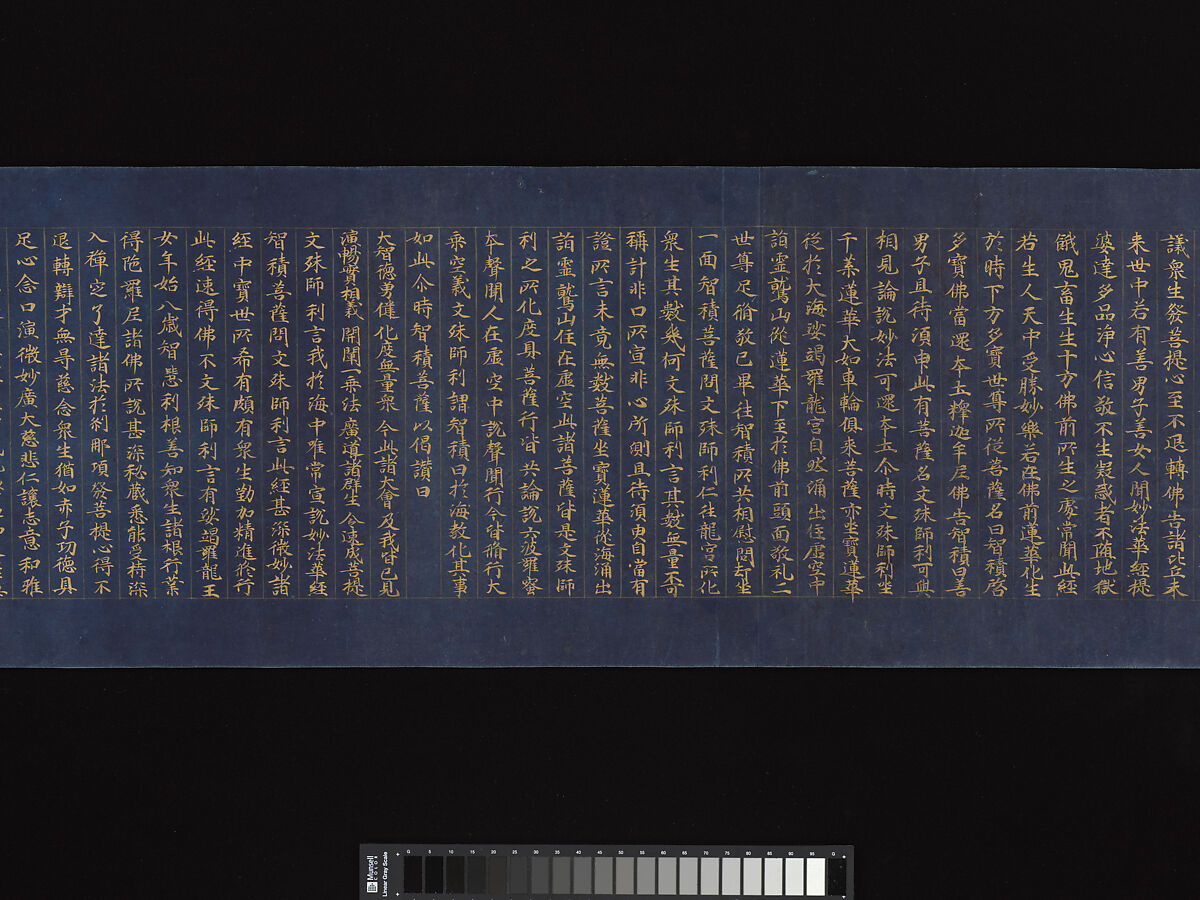 議衆生發菩提心至不退轉佛告諸比丘未
来世中若有善男子善女人聞妙法華經提
婆達多品淨心信敬不生疑惑者不堕地獄
餓鬼畜生生十方佛前所生之處常聞此經
若生人天中受勝妙樂若在佛前蓮華化生
於時下方多寶世尊所從菩薩名曰智積啓
多寶佛當還本土釋迦牟尼佛告智積曰善
男子且待須臾此有菩薩名文殊師利可與
相見論說妙法可還本土尒時文殊師利坐
千葉蓮華大如車輪俱来菩薩亦坐寶蓮華
從於大海娑竭羅龍宮自然涌出住虛空中
詣靈鷲山從蓮華下至於佛前頭面敬礼二
世尊足脩敬已畢往智積所共相慰問却坐
一面智積菩薩問文殊師利仁往龍宮所化
衆生其數幾何文殊師利言其數無量不可
稱計非口所宣非心所測且待須臾自當有
證所言未竟無數菩薩坐寶蓮華從海涌出
詣靈鷲山住在虛空此諸菩薩皆是文殊師
利之所化度具菩薩行皆共論說六波羅蜜
本聲聞人在虛空中說聲聞行今皆脩行大
乘空義文殊師利謂智積曰於海教化其事
如此尒時智積菩薩以偈讚曰
大智德勇健 化度無量衆 今此諸大會 及我皆已見
演暢實相義 開闡一乘法 廣導諸群生 令速成菩提
文殊師利言我於海中唯常宣說妙法華經
智積菩薩問文殊師利言此經甚深微妙諸
經中寶世所希有頗有衆生勤加精進脩行
此經速得佛不文殊師利言有娑竭羅龍王
女年始八歲智慧利根善知衆生諸根行業
得陁羅尼諸佛所說甚深秘藏悉能受持深
入禪定了達諸法於刹那頃發菩提心得不
退轉辯才無㝵慈念衆生猶如赤子功德具
足心念口演微妙廣大慈悲仁讓志意和雅
Munsell
COLOR
Linear Gray Scale
G 5 10 15 20 25 30 35 40 45 50 55 60 65 70 75 80 85 90 95 G